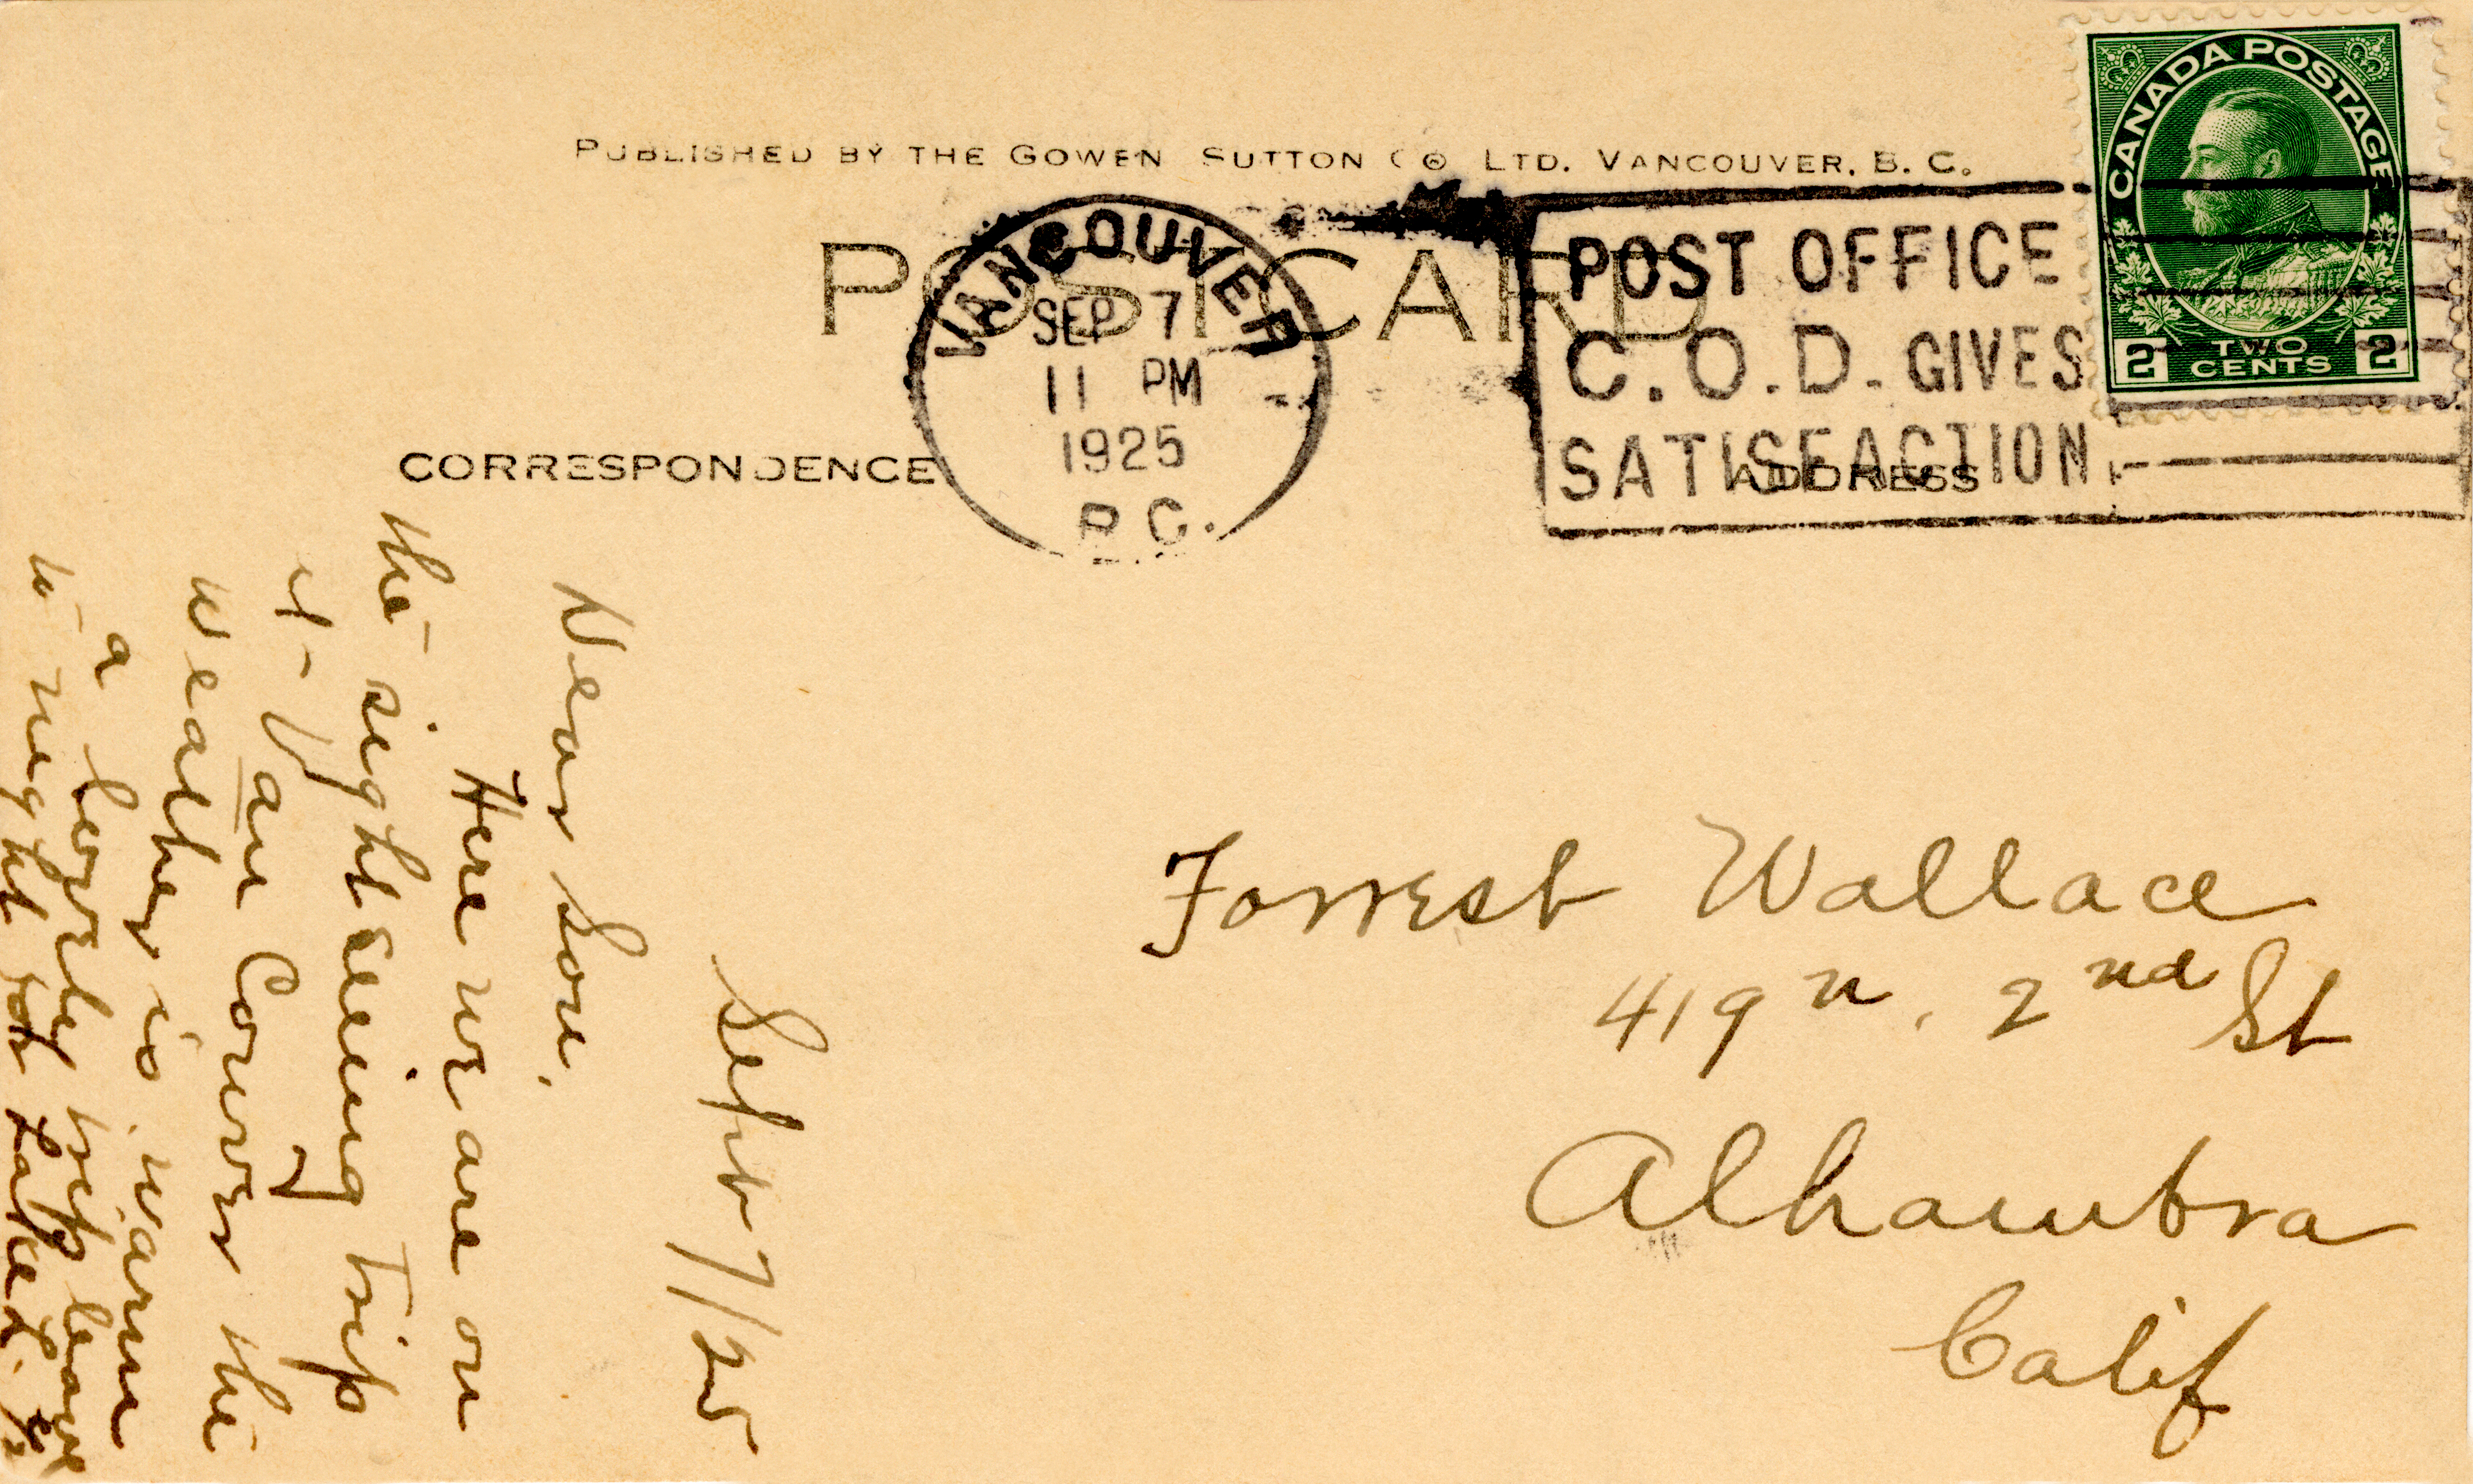 PUBLISHED BY THE GOWEN SUTTON CO LTD. VANCOUVER, B. C.
POST CARD
VANCOUVER
SEP 7
11 PM
1925
B.C.
POST OFFICE
C.O.D. GIVES
SATISFACTION
CANADA POSTAGE
2 TWO CENTS 2
CORRESPONDENCE
ADDRESS
Sept 7/25
Dear Son,
Here we are on
the sight seeing trip
of Van Couver the
weather is warm
a lovely trip leave
to night for Lake L.
Forrest Wallace
419 n. 2nd St
Alhambra
Calif